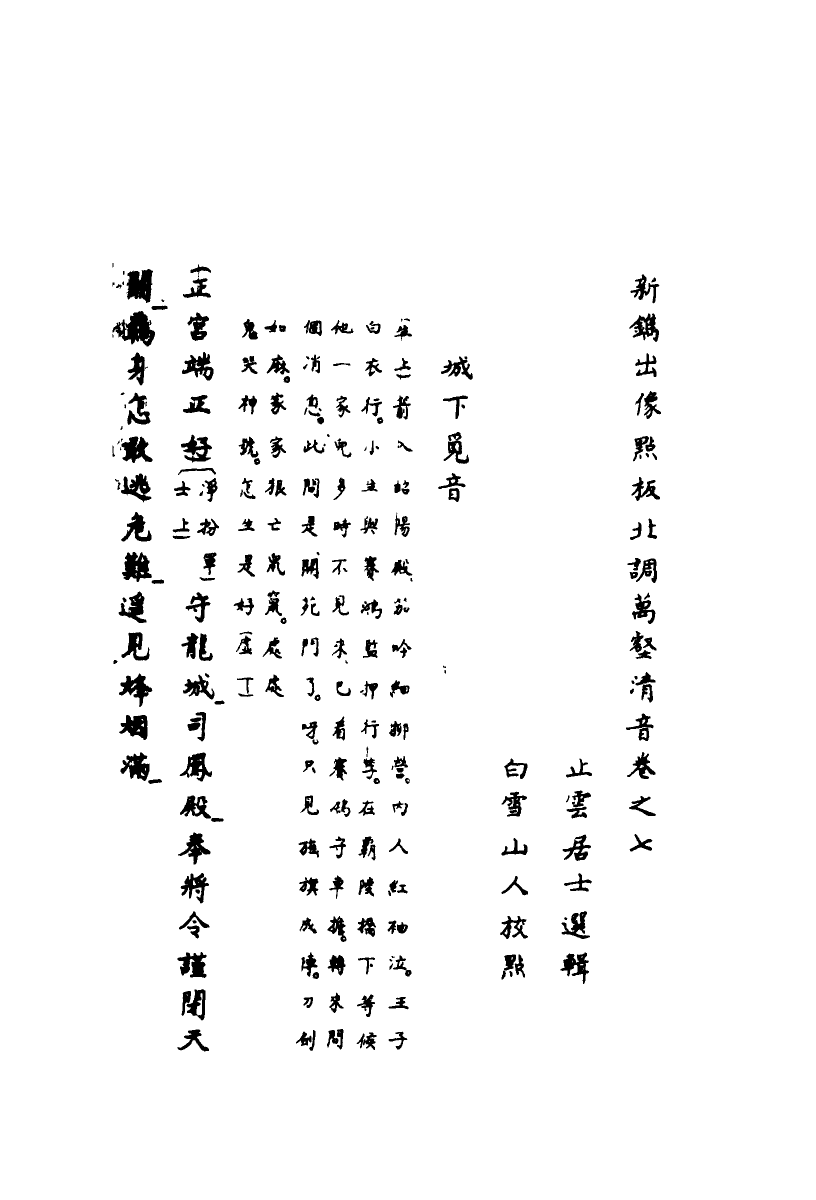 新鐫出像點板北調萬壑清音卷之七
止雲居士選輯
白雪山人挍點
城下覓音
上箭入昭陽殿笳吟細柳營。內人紅袖泣。王子
白衣行。小生與賽鴻監押行李。在霸陵橋下等候
他一家兒多時不見來。已着賽鴻守車擔。轉來問
個消息。此間是開苑門了。呀只見旌旗成陣。刀劍
如麻。家家狼亡鼠竄。處處
鬼哭神號。怎生是好虛下
正宮端正好淨扮軍士上守龍城司鳳殿奉將令謹閉天
關身怎敢逃危難遥見烽烟滿